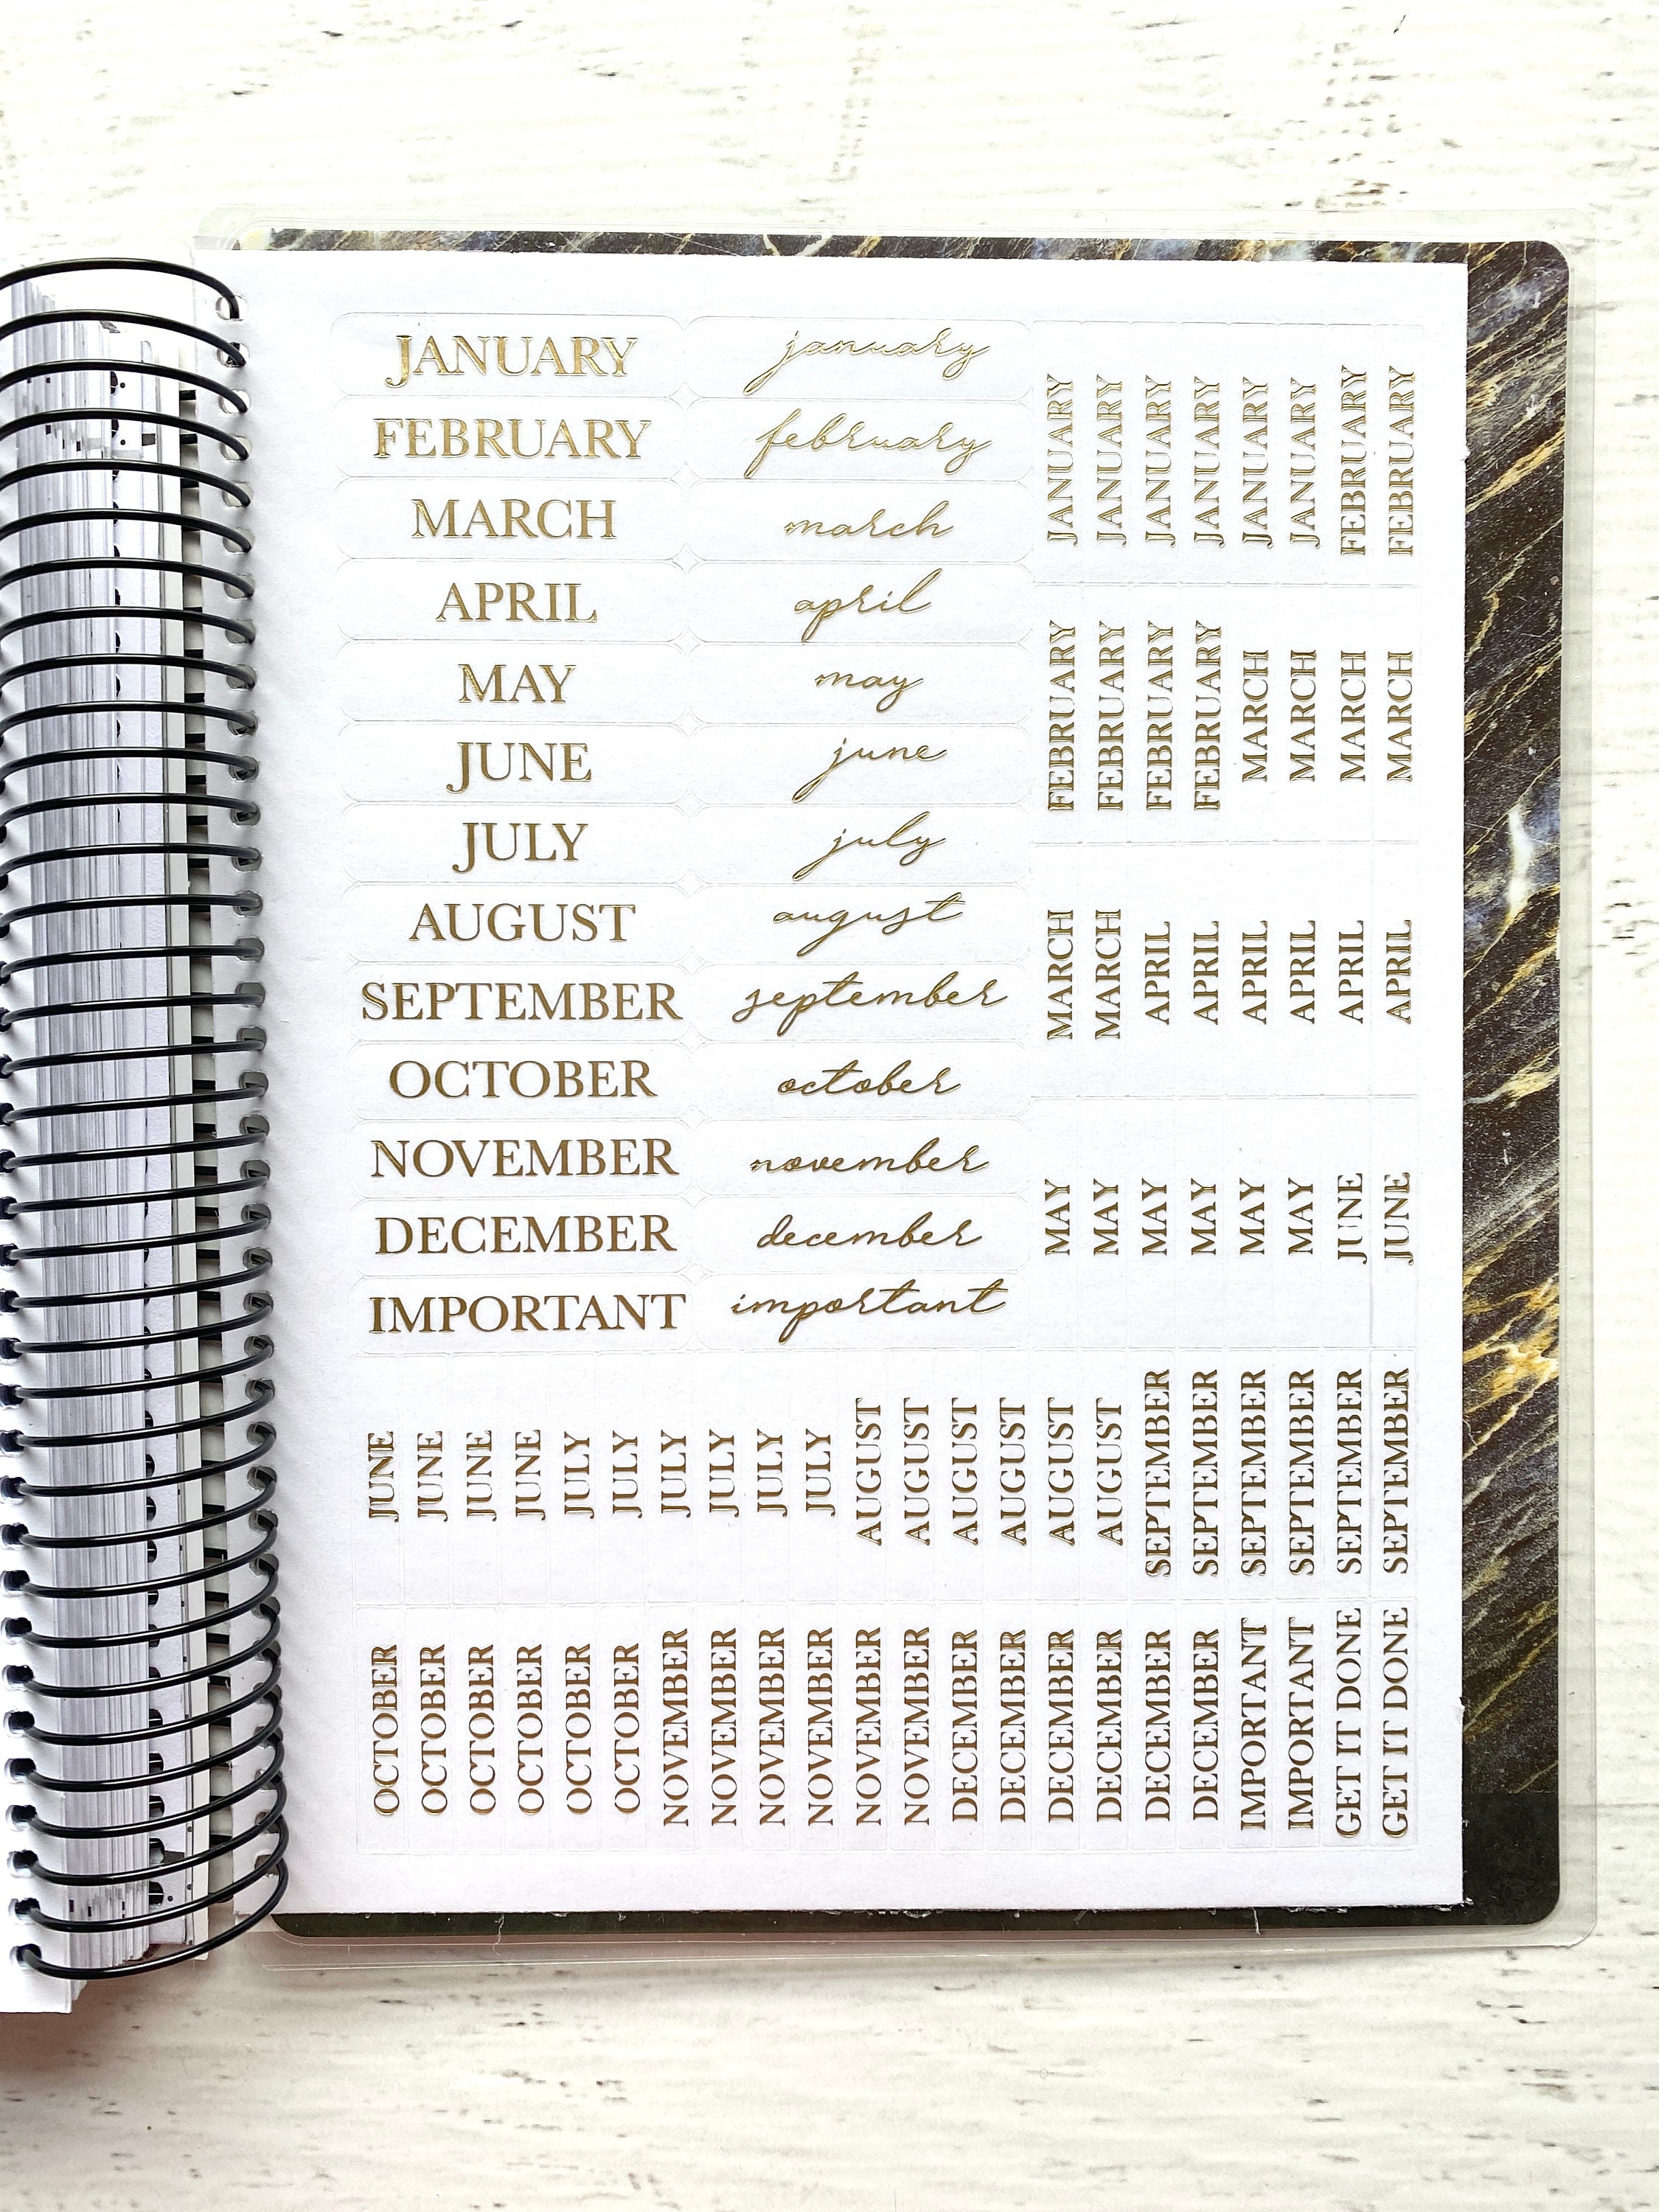 JANUARY january
FEBRUARY february
MARCH march
APRIL april
MAY may
JUNE june
JULY july
AUGUST august
SEPTEMBER september
OCTOBER october
NOVEMBER november
DECEMBER december
IMPORTANT important
JANUARY
JANUARY
JANUARY
JANUARY
JANUARY
JANUARY
FEBRUARY
FEBRUARY
FEBRUARY
FEBRUARY
FEBRUARY
FEBRUARY
MARCH
MARCH
MARCH
MARCH
MARCH
MARCH
APRIL
APRIL
APRIL
APRIL
APRIL
APRIL
MAY
MAY
MAY
MAY
MAY
MAY
JUNE
JUNE
JUNE
JUNE
JUNE
JUNE
JULY
JULY
JULY
JULY
JULY
JULY
AUGUST
AUGUST
AUGUST
AUGUST
AUGUST
AUGUST
SEPTEMBER
SEPTEMBER
SEPTEMBER
SEPTEMBER
SEPTEMBER
SEPTEMBER
OCTOBER
OCTOBER
OCTOBER
OCTOBER
OCTOBER
OCTOBER
NOVEMBER
NOVEMBER
NOVEMBER
NOVEMBER
NOVEMBER
NOVEMBER
DECEMBER
DECEMBER
DECEMBER
DECEMBER
DECEMBER
DECEMBER
IMPORTANT
IMPORTANT
GET IT DONE
GET IT DONE